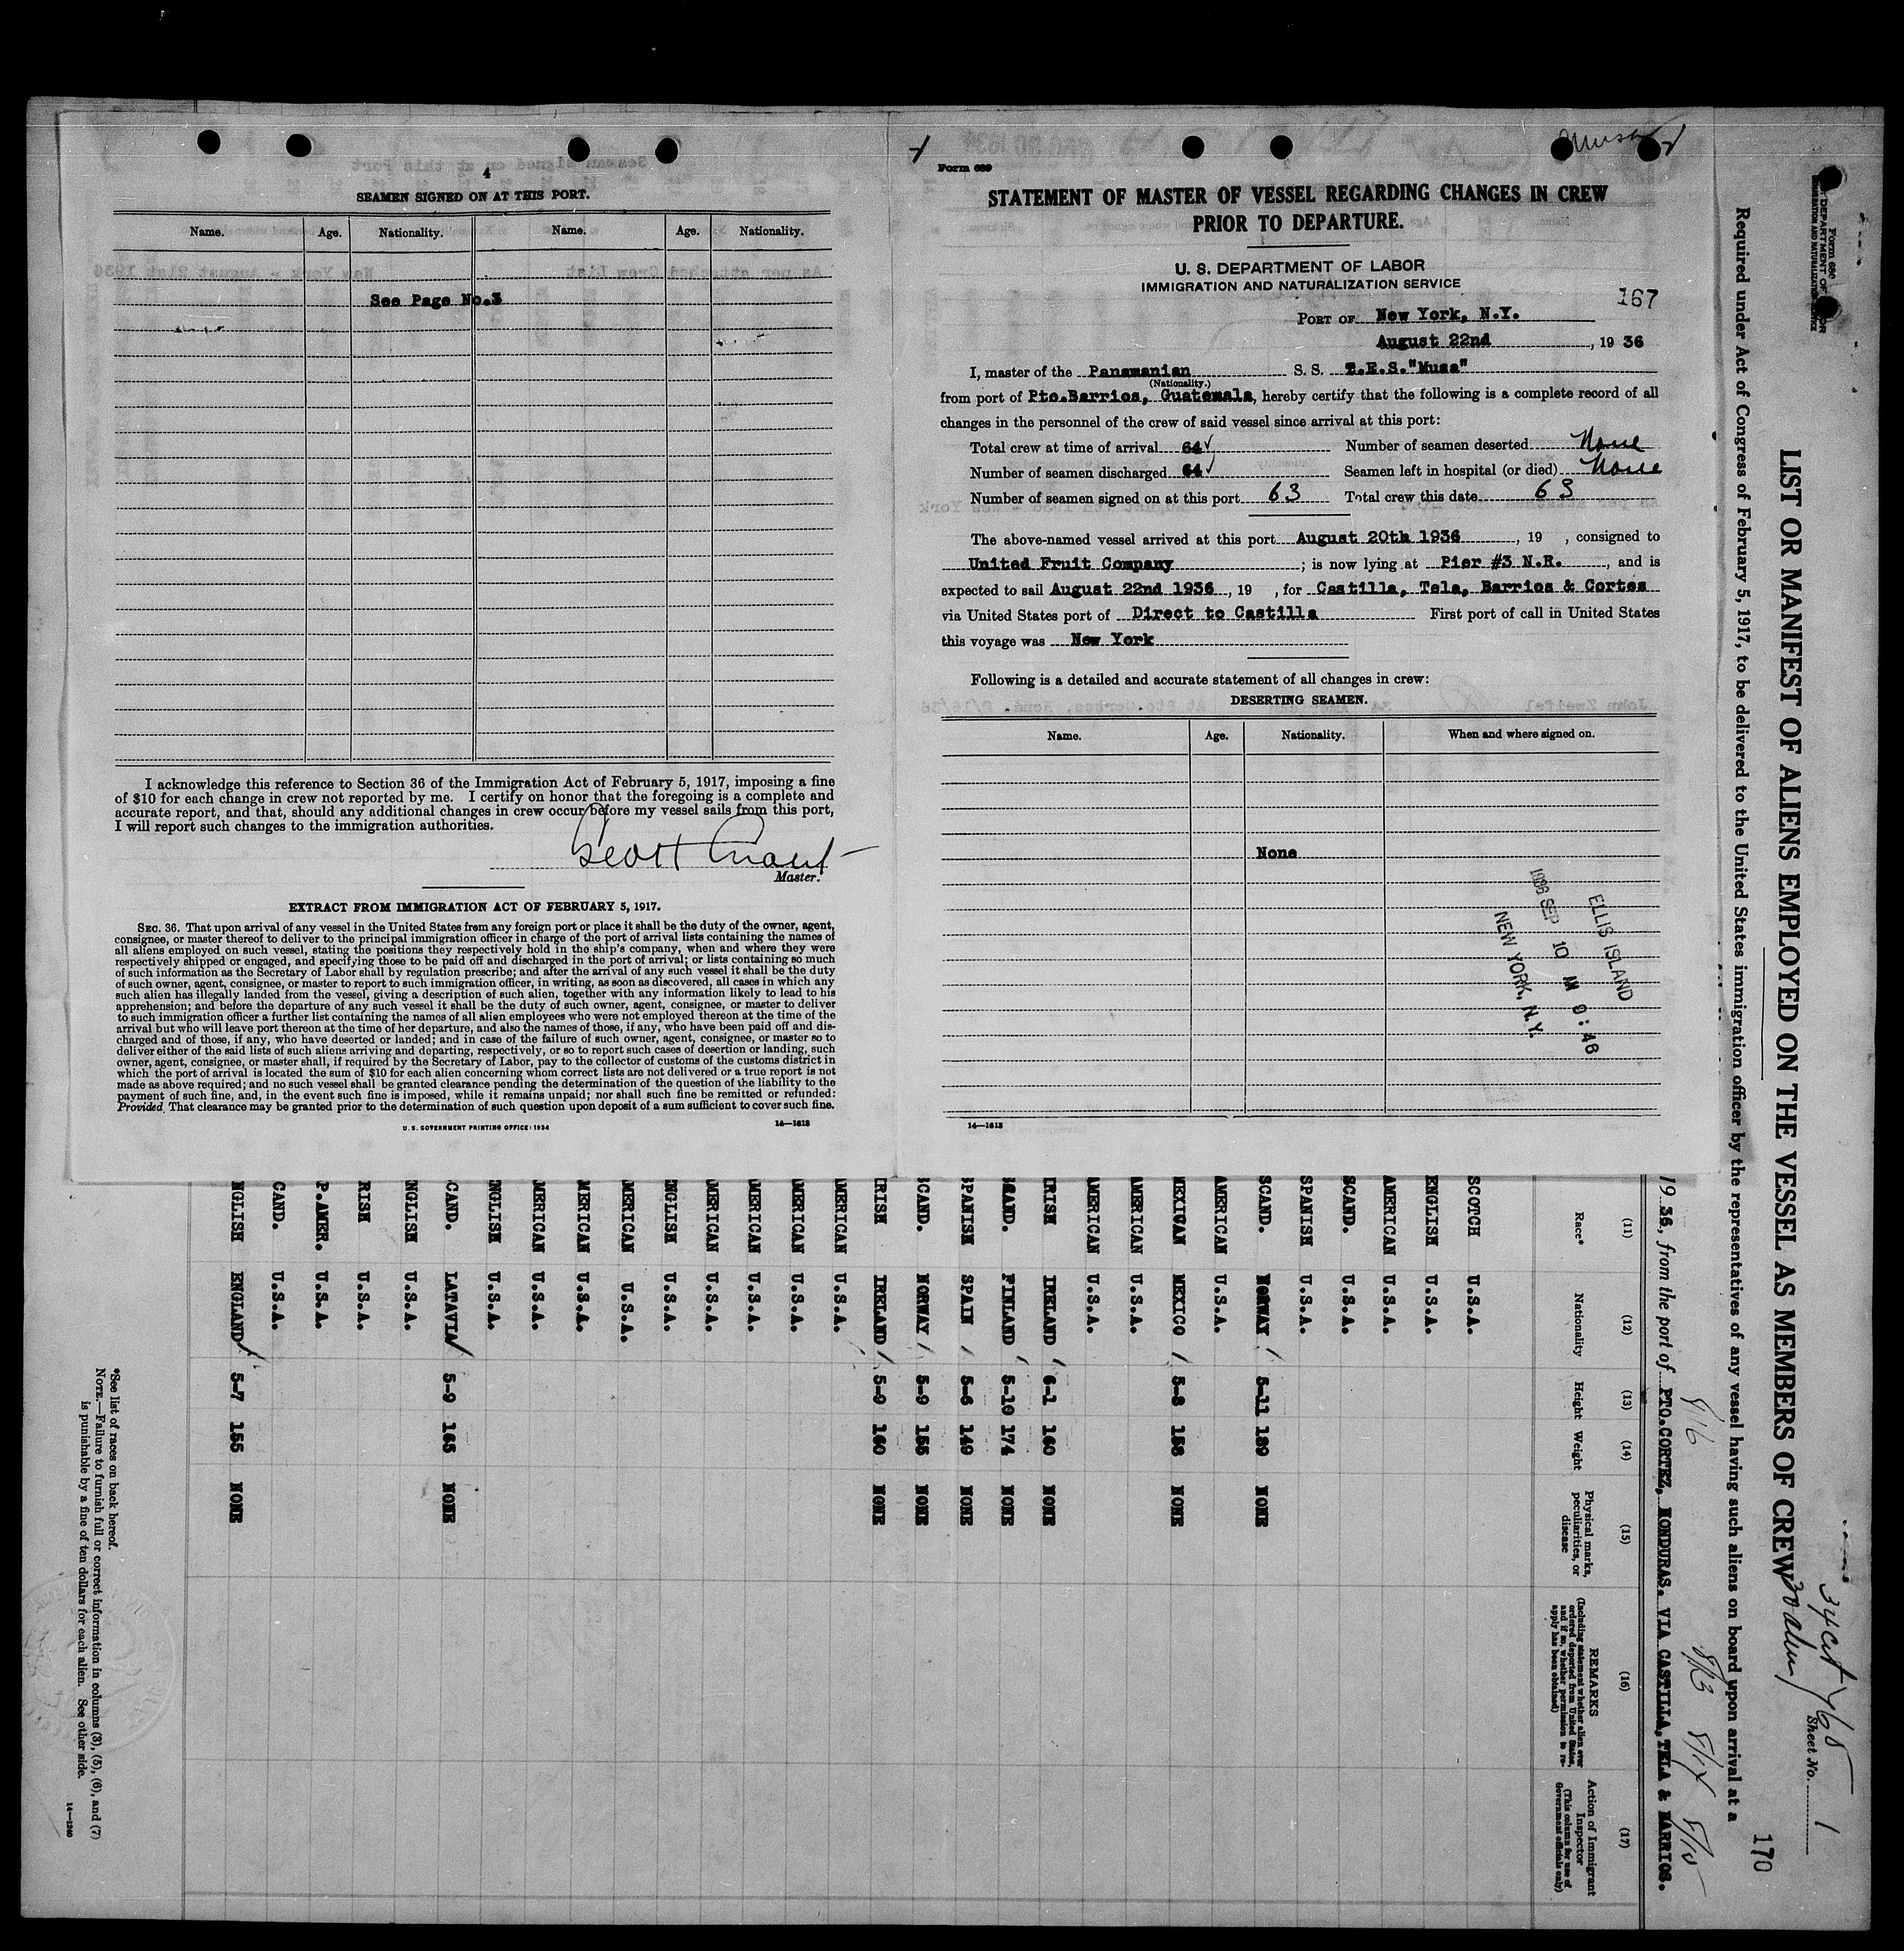 4
SEAMEN SIGNED ON AT THIS PORT.
Name. Age. Nationality. Name. Age. Nationality.
See Page No.3
I acknowledge this reference to Section 36 of the Immigration Act of February 5, 1917, imposing a fine
of $10 for each change in crew not reported by me. I certify on honor that the foregoing is a complete and
accurate report, and that, should any additional changes in crew occur before my vessel sails from this port,
I will report such changes to the immigration authorities.
Scott Grant
Master.
EXTRACT FROM IMMIGRATION ACT OF FEBRUARY 5, 1917.
SEC. 36. That upon arrival of any vessel in the United States from any foreign port or place it shall be the duty of the owner, agent,
consignee, or master thereof to deliver to the principal immigration officer in charge of the port of arrival lists containing the names of
all aliens employed on such vessel, stating the positions they respectively hold in the ship's company, when and where they were
respectively shipped or engaged, and specifying those to be paid off and discharged in the port of arrival; or lists containing so much
of such information as the Secretary of Labor shall by regulation prescribe; and after the arrival of any such vessel it shall be the duty
of such owner, agent, consignee, or master to report to such immigration officer, in writing, as soon as discovered, all cases in which any
such alien has illegally landed from the vessel, giving a description of such alien, together with any information likely to lead to his
apprehension; and before the departure of any such vessel it shall be the duty of such owner, agent, consignee, or master to deliver
to such immigration officer a further list containing the names of all alien employees who were not employed thereon at the time of the
arrival but who will leave port thereon at the time of her departure, and also the names of those, if any, who have been paid off and dis-
charged and of those, if any, who have deserted or landed; and in case of the failure of such owner, agent, consignee, or master so to
deliver either of the said lists of such aliens arriving and departing, respectively, or so to report such cases of desertion or landing, such
owner, agent, consignee, or master shall, if required by the Secretary of Labor, pay to the collector of customs of the customs district in
which the port of arrival is located the sum of $10 for each alien concerning whom correct lists are not delivered or a true report is not
made as above required; and no such vessel shall be granted clearance pending the determination of the question of the liability to the
payment of such fine, and, in the event such fine is imposed, while it remains unpaid; nor shall such fine be remitted or refunded:
Provided, That clearance may be granted prior to the determination of such question upon deposit of a sum sufficient to cover such fine.
U. S. GOVERNMENT PRINTING OFFICE: 1934 14—1613
Musa
Form 689
STATEMENT OF MASTER OF VESSEL REGARDING CHANGES IN CREW
PRIOR TO DEPARTURE.
U. S. DEPARTMENT OF LABOR
IMMIGRATION AND NATURALIZATION SERVICE
167
PORT OF New York, N.Y.
August 22nd, 19 36
I, master of the Panamanian S. S. T.E.S."Musa"
(Nationality.)
from port of Pto.Barrios, Guatemala, hereby certify that the following is a complete record of all
changes in the personnel of the crew of said vessel since arrival at this port:
Total crew at time of arrival 64 Number of seamen deserted None
Number of seamen discharged 64 Seamen left in hospital (or died) None
Number of seamen signed on at this port 63 Total crew this date 63
The above-named vessel arrived at this port August 20th 1936, 19 , consigned to
United Fruit Company; is now lying at Pier #3 N.R., and is
expected to sail August 22nd 1936, 19 , for Castilla, Tela, Barrios & Cortes
via United States port of Direct to Castilla First port of call in United States
this voyage was New York
Following is a detailed and accurate statement of all changes in crew:
DESERTING SEAMEN.
Name. Age. Nationality. When and where signed on.
None
ELLIS ISLAND
1936 SEP 10 AM 9:46
NEW YORK, N.Y.
14—1613
Form 680
Sheet No. 1
34 cit
30 alien
170
LIST OR MANIFEST OF ALIENS EMPLOYED ON THE VESSEL AS MEMBERS OF CREW
Required under Act of Congress of February 5, 1917, to be delivered to the United States immigration officer by the representatives of any vessel having such aliens on board upon arrival at a
8/16 8/13 8/14 8/15
19 36, from the port of PTO.CORTEZ, HONDURAS. VIA CASTILLA, TELA & BARRIOS.
(11) (12) (13) (14) (15) (16) (17)
Race* Nationality Height Weight Physical marks, peculiarities, or disease REMARKS (Including statement whether alien ever ordered deported from United States, and if so, whether permission to reapply has been obtained) Action of Immigrant Inspector (This column for use of Government officials only)
SCOTCH U.S.A.
ENGLISH U.S.A.
AMERICAN U.S.A.
SCAND. U.S.A.
SPANISH U.S.A.
SCAND. NORWAY 5-11 189 NONE
AMERICAN U.S.A.
MEXICAN MEXICO 5-8 158 NONE
AMERICAN U.S.A.
AMERICAN U.S.A.
IRISH IRELAND 6-1 160 NONE
SCAND. FINLAND 5-10 174 NONE
SPANISH SPAIN 5-6 149 NONE
SCAND. NORWAY 5-9 155 NONE
IRISH IRELAND 5-9 160 NONE
AMERICAN U.S.A.
AMERICAN U.S.A.
AMERICAN U.S.A.
AMERICAN U.S.A.
NGLISH U.S.A.
MERICAN U.S.A.
MERICAN U.S.A.
MERICAN U.S.A.
NGLISH U.S.A.
CAND. LATAVIA 5-9 165 NONE
NGLISH U.S.A.
RISH U.S.A.
P.AMER. U.S.A.
CAND. U.S.A.
NGLISH ENGLAND 5-7 155 NONE
*See list of races on back hereof.
NOTE.—Failure to furnish full or correct information in columns (3), (5), (6), and (7)
is punishable by a fine of ten dollars for each alien. See other side.
14—1240